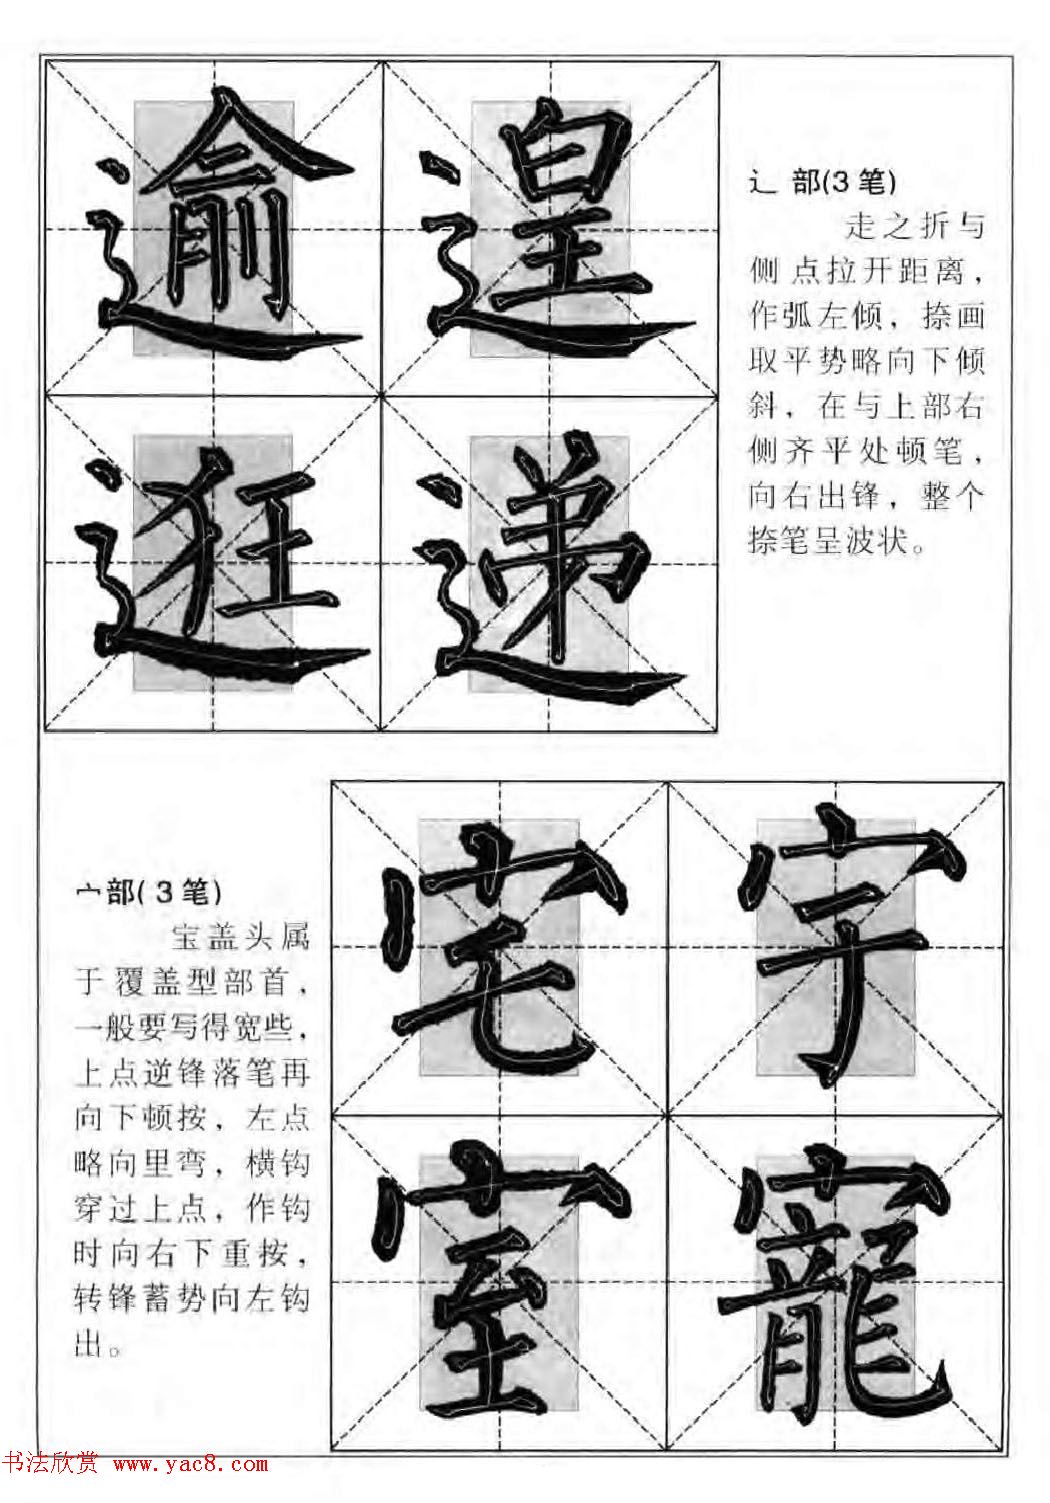 逾遑
逛递
辶部(3笔)
走之折与
侧点拉开距离，
作弧左倾，捺画
取平势略向下倾
斜，在与上部右
侧齐平处顿笔，
向右出锋，整个
捺笔呈波状。
宀部(3笔)
宝盖头属
于覆盖型部首，
一般要写得宽些，
上点逆锋落笔再
向下顿按，左点
略向里弯，横钩
穿过上点，作钩
时向右下重按，
转锋蓄势向左钩
出。
宅字
室寵
书法欣赏 www.yac8.com